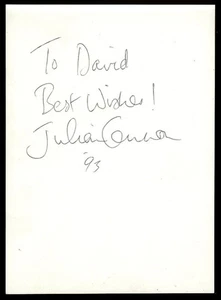 To David
Best Wishes!
Julian
'93